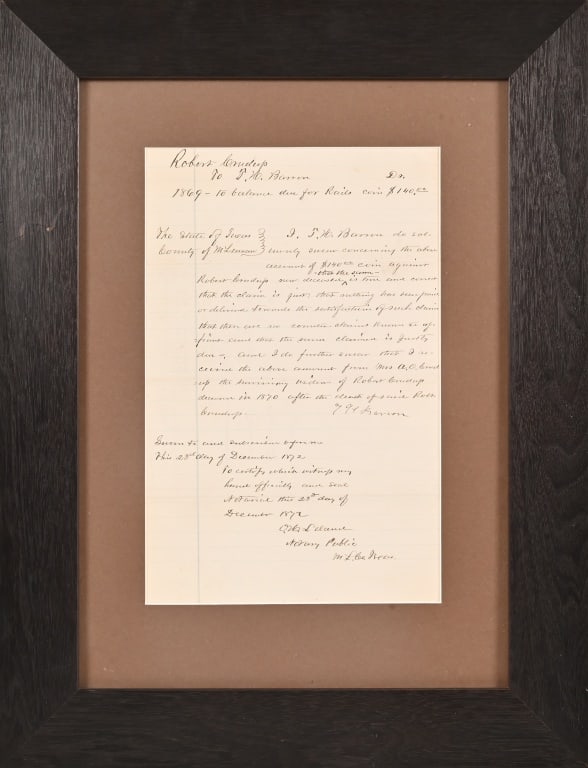 Robert Crudup
To T. H. Barron Dr.
1869 - To balance due for Rails coin $140.00
The State of Texas } I, T. H. Barron do sol
County of McLennan } emnly swear concerning the above
account of $140.00 coin against
that the same
Robert Crudup now deceased, is true and correct
that the claim is just, that nothing has been paid
or delivered towards the satisfaction of such claim
that there are no counter claims known to af
fiant and that the sum claimed is justly
due -, and I do further swear that I re
ceived the above amount from Mrs A. C. Crud
up the surviving widow of Robert Crudup
deceased in 1870 after the death of said Robt
Crudup T H Barron
Sworn to and subscribed before me
This 28th day of December 1872
To certify which witness my
hand officially and seal
Notarial this 28th day of
December 1872
Notary Public
M L Co Texas